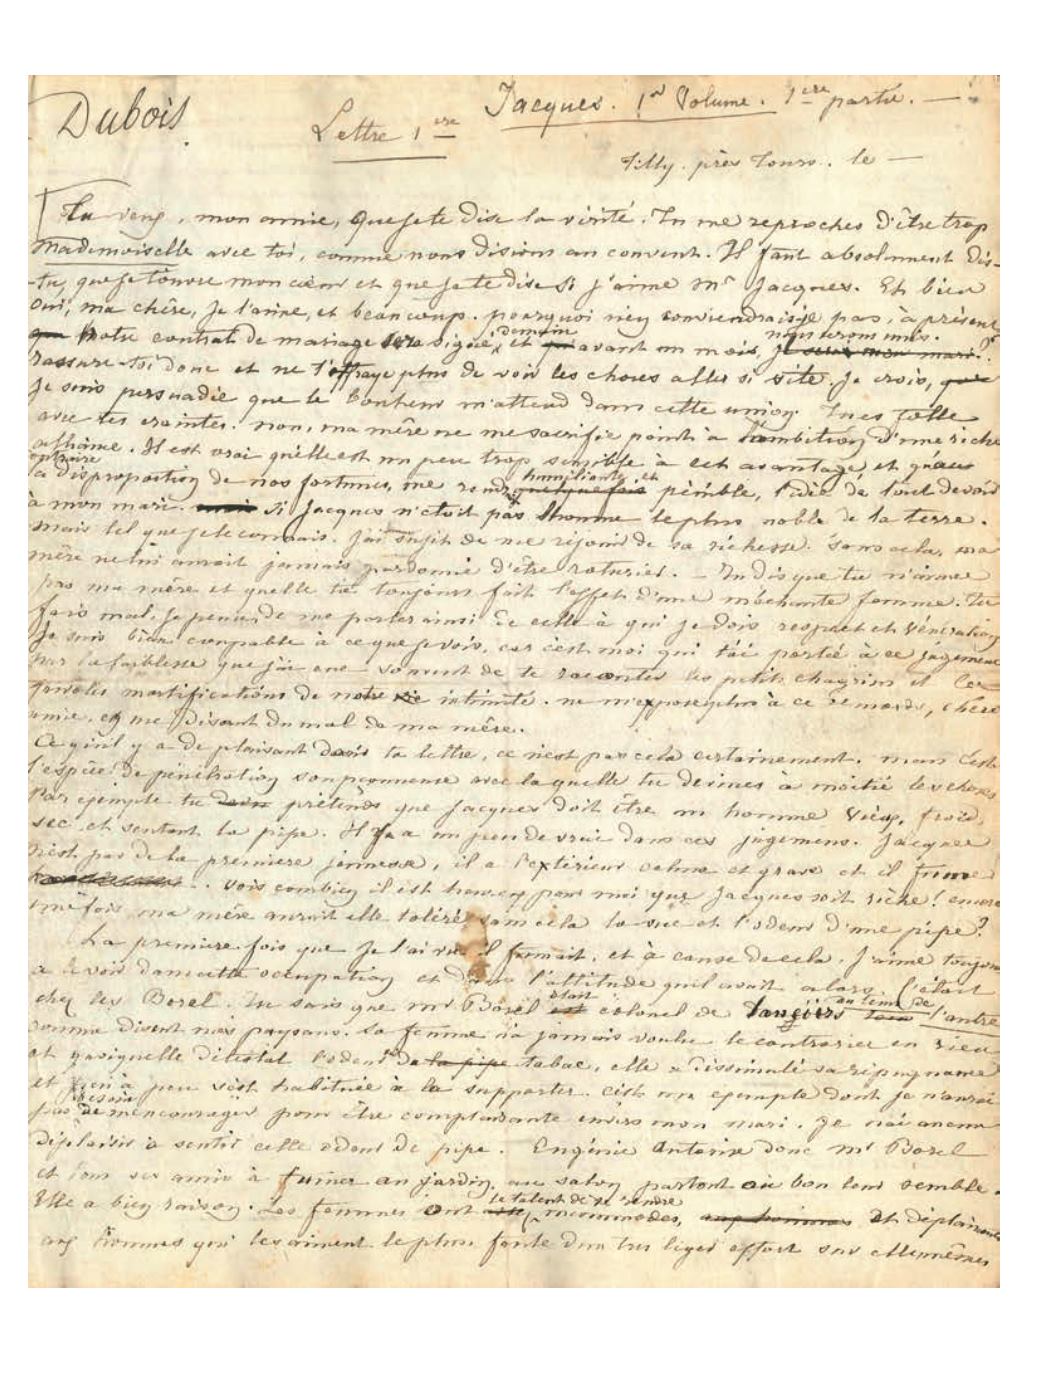 Dubois
Jacques. 1er Volume. 1ere partie. —
Lettre 1ere
Tilly. près Tours. le —
Tu veux, mon amie, que je te dise la vérité. Tu me reproches d'être trop
mademoiselle avec toi, comme nous disions au couvent. Il faut absolument dis-
-tu, que je t'ouvre mon cœur et que je te dise si j'aime Mr Jacques. Eh bien
oui, ma chère, je l'aime, et beaucoup. pourquoi n'en conviendrais je pas, à présent
demain nous serons unis.
notre contrat de mariage sera signé, et avant un mois,
rassure-toi donc et ne t'effraye plus de voir les choses aller si vite. Je crois,
Je suis persuadée que le bonheur m'attend dans cette union. Tu es folle
avec tes craintes. non, ma mère ne me sacrifie point à l'ambition d'une riche
alliance. Il est vrai qu'elle est un peu trop sensible à cet avantage, et qu'au
contraire humiliante et
la disproportion de nos fortunes, me rendrait quelquefois pénible, l'idée de tout devoir
à mon mari. si Jacques n'était pas l'homme le plus noble de la terre.
mais tel que je le connais. j'ai sujet de me réjouir de sa richesse. Sans cela, ma
mère ne lui aurait jamais pardonné d'être roturier. — Tu dis que tu n'aimes
pas ma mère et qu'elle t'a toujours fait l'effet d'une méchante femme. Tu
fais mal, je pense, de me parler ainsi de celle à qui je dois respect et vénération
Je suis bien coupable à ce que je vois, car c'est moi qui t'ai portée à ce jugement
par la faiblesse que j'ai eue souvent de te raconter les petits chagrins et les
frivoles mortifications de notre intimité. ne m'expose plus à ce remords, chère
amie, en me disant du mal de ma mère.
Ce qu'il y a de plaisant dans ta lettre, ce n'est pas cela certainement. mais c'est
l'espèce de pénétration soupçonneuse avec laquelle tu devines à moitié les choses
Par exemple tu prétends que Jacques doit être un homme vieux, froid,
sec, et sentant la pipe. Il y a un peu de vrai dans ces jugemens. Jacques
n'est pas de la première jeunesse, il a l'extérieur calme et grave et il fume
vois combien il est heureux pour moi que Jacques soit riche! encore
une fois, ma mère aurait elle toléré sans cela la vue et l'odeur d'une pipe?
La première fois que je l'ai vu il fumait, et à cause de cela, j'aime toujours
à le voir dans cette occupation et dans l'attitude qu'il avait alors. C'était
chez les Borel. Tu sais que Mr Borel était colonel de lanciers du tems de l'autre
comme disent nos paysans. sa femme n'a jamais voulu le contrarier en rien
et quoiqu'elle détestat l'odeur du la pipe tabac, elle a dissimulé sa répugnance
et peu à peu s'est habituée à la supporter. c'est un exemple dont je n'aurai
pas besoin de m'encourager pour être complaisante envers mon mari. Je n'ai aucun
déplaisir à sentir cette odeur de pipe. Eugénie autorise donc Mr Borel
et tous ses amis à fumer au jardin, au salon, partout où bon leur semble.
le talent de se rendre
Elle a bien raison. Les femmes ont incommodes, et déplaisantes
aux hommes qui les aiment le plus, faute d'un très léger effort sur elles-mêmes